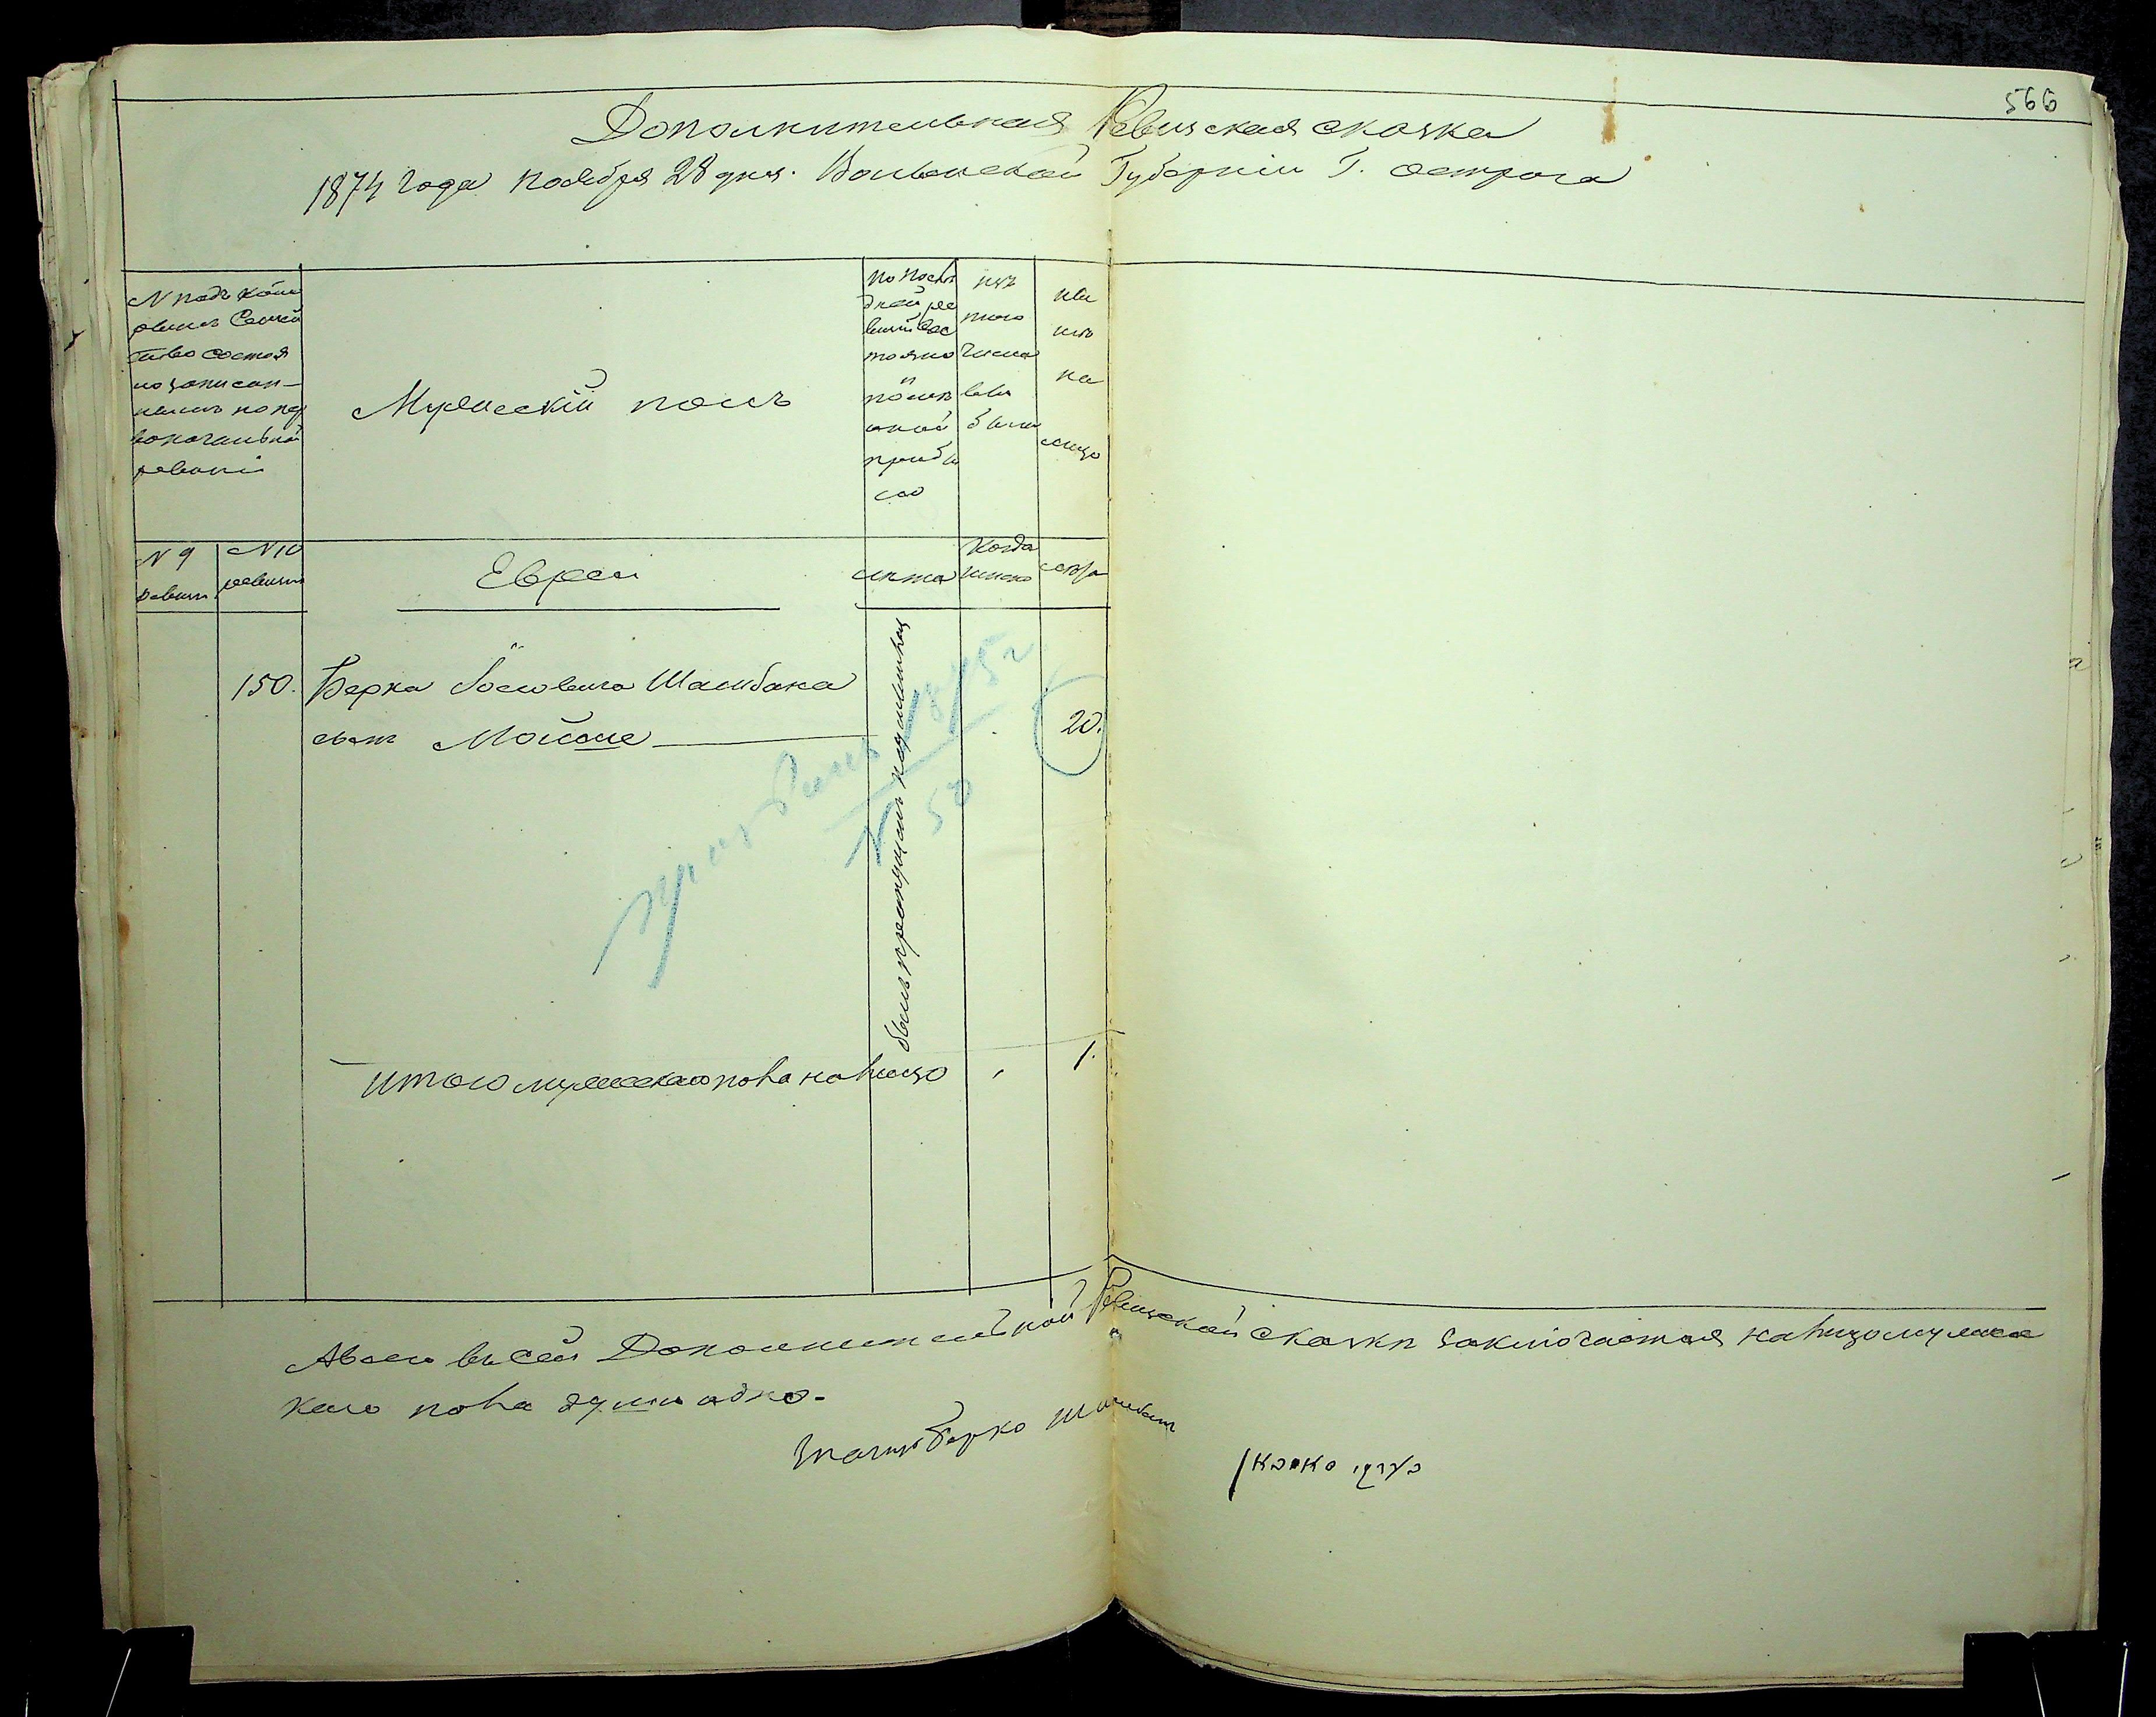 566
Дополнительная Ревизская сказка
1874 года ноября 28 дня. Волынской Губерніи Г. Острога
N подъ коимъ
семей
ство состоя
ло записан-
нымъ по пер
воначальной
ревизіи
Мужескій полъ
По послѣ
дней ре
визіи сос
тояло
и
послѣ
оной
прибы
ло
изъ
того
числа
вы
было
ны
нѣ
на
лицо
N 9
ревизіи
N 10
ревизіи
Евреи
лѣта
Когда
именно
лѣта
150.
Берка Іосіовича Шамбана
сынъ Мойше
былъ пропущенъ
20.
1875 г
50
итого мужеского пола налицо
1.
А всего въ сей Дополнительной Ревизской сказкѣ заключается налицо мужес
каго пола душъ одно-
Берко